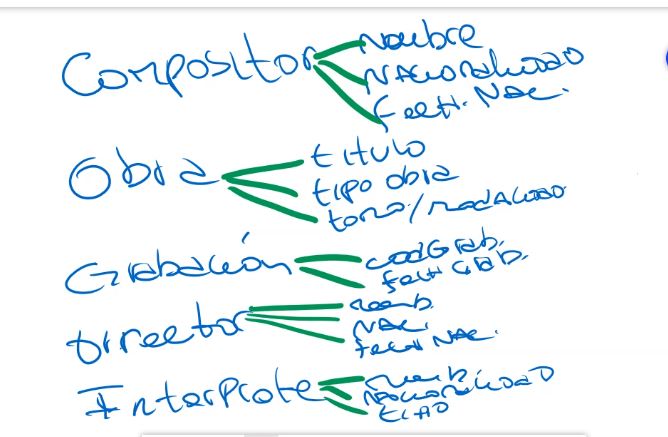 Compositor
Nombre
Nacionalidad
Fech. Nac.
Obra
titulo
tipo obra
tono/modalidad
Grabación
codGrab.
fech Grab.
Director
nomb.
Nac.
fech Nac.
Interprete
nomb.
Nacionalidad